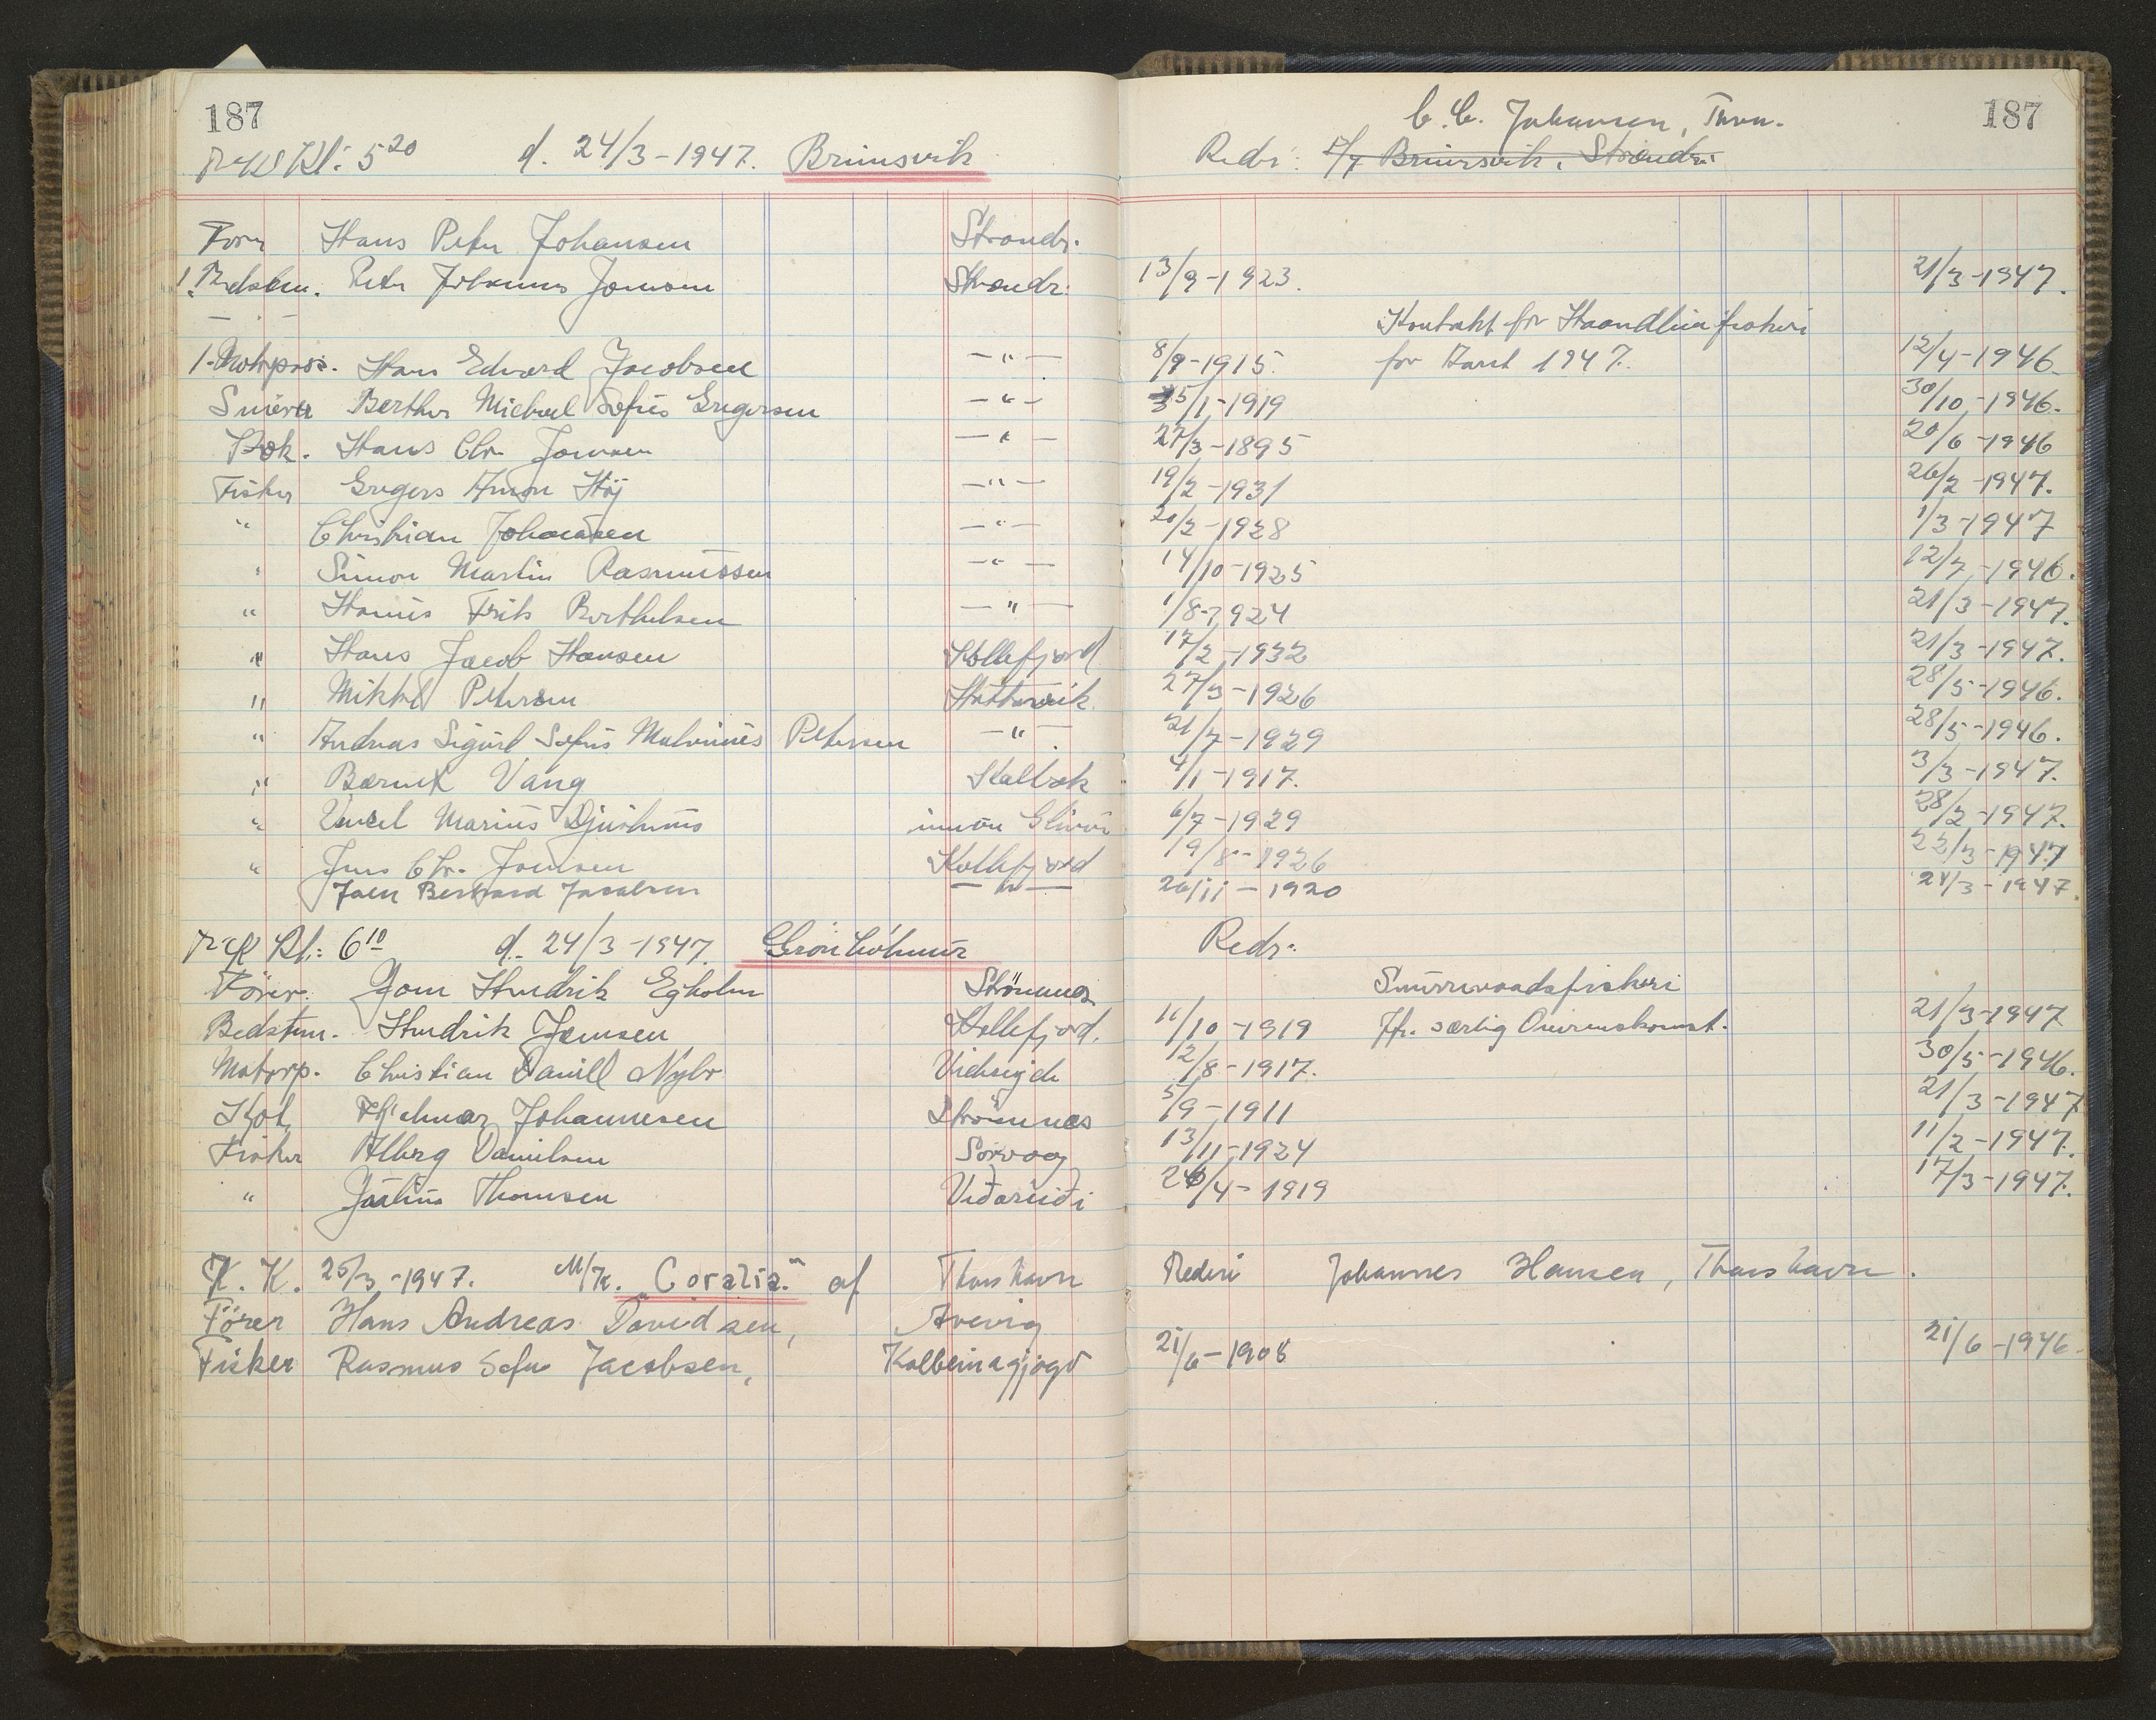 187
Kl. 5 20 d. 24/3-1947. Brimsvik
C. C. Johansen, Thvn. 187
Redr: P/f Brimsvik, Strendr.
Hans Peter Johansen Strendr.
1. Bedstm. Peter Johannes Joensen Strendr. 13/9-1923. 21/3-1947.
Kontrakt for Haandlinefiskeri
1. Motorpas. Hans Edvard Jacobsen — " — 8/9-1915. for Marts 1947. 12/4-1946
Smörer Berthur Michael Sofus Gregersen — " — 1919 30/10-1946.
Kok. Hans Chr. Joensen — " — 27/3-1895 20/6-1946
Fisker Gregers Simon Höj — " — 19/2-1931 26/2-1947.
" Christian Johansen — " — 20/2-1928 1/3-1947
" Simon Martin Rasmussen — " — 14/10-1925 12/7-1946.
" Hanus Frits Berthelsen — " — 1/8-1924 21/3-1947.
" Hans Jacob Hansen Kollefjord 17/2-1932 21/3-1947.
" Mikkel Petersen Hattervik. 27/3-1926 28/5-1946.
" Andreas Sigurd Sofus Malvinus Petersen — " — 21/7-1929 28/5-1946.
" Vang Kaltbak 4/1-1917. 3/3-1947.
" Marius Djurhuus innan Glivur 6/7-1929 28/2-1947.
" Jens Chr. Joensen Kollefjord 19/8-1926 22/3-1947
Bernhard Jacobsen — " — 26/11-1920 24/3-1947.
Kl: 6 10 d. 24/3-1947. Grönhólmur Redr:
Förer. Hendrik Egholm Strömnes Snurrevaadsfiskeri
Bedstm. Hendrik Joensen Kollefjord. 11/10-1919 Ifr. særlig Overenskomst. 21/3-1947
Motorp. Christian Daniel 12/8-1917. 30/5-1946.
Kok Hjalmar Johannesen Strömnæs 5/9-1911 21/3-1947
Fisker Alberg Danielsen Sörvaag 13/11-1924 11/2-1947.
" Júlíus Thomsen Viðareiði 26/4-1919 17/3-1947.
K. K. 25/3-1947. M/K. "Coralia." af Thorshavn Rederi Johannes Hansen, Thorshavn.
Förer Hans Andreas Davidsen, Kvivig
Fisker Rasmus Sofus Jacobsen, Kolbeinagjogv 21/6-1908 21/6-1946.